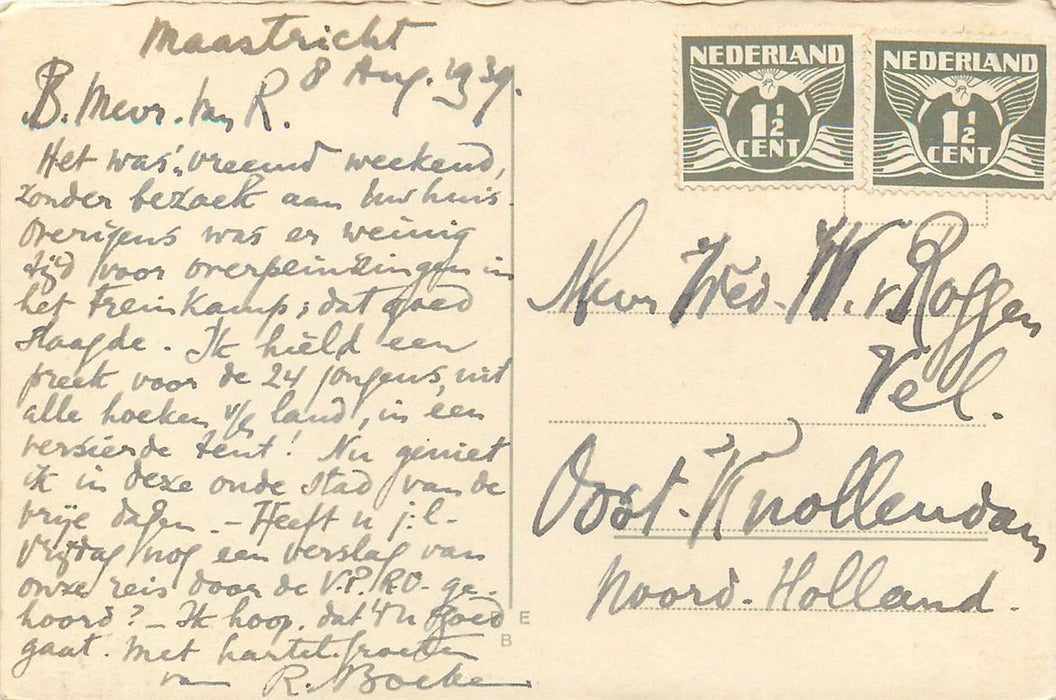 Maastricht
8 Aug. 1939.
B. Mevr. van R.
Het was 'n vreemd weekend,
zonder bezoek aan Uw huis.
Overigens was er weinig
tijd voor overpeinzingen in
het treinkamp; dat goed
slaagde. Ik hield een
preek voor de 24 jongens, uit
alle hoeken v/h land, in een
versierde tent! Nu geniet
ik in deze oude stad van de
vrije dagen. - Heeft u j.l.
Vrijdag nog een verslag van
onze reis door de V.P.R.O. ge-
hoord? - Ik hoop, dat 't U goed
gaat. Met hartel. groeten
van R. Boeke
NEDERLAND
1½
CENT
NEDERLAND
1½
CENT
Mevr Wed. W. v. Roggen
Vel.
Oost-Knollendam
Noord-Holland.
E
B